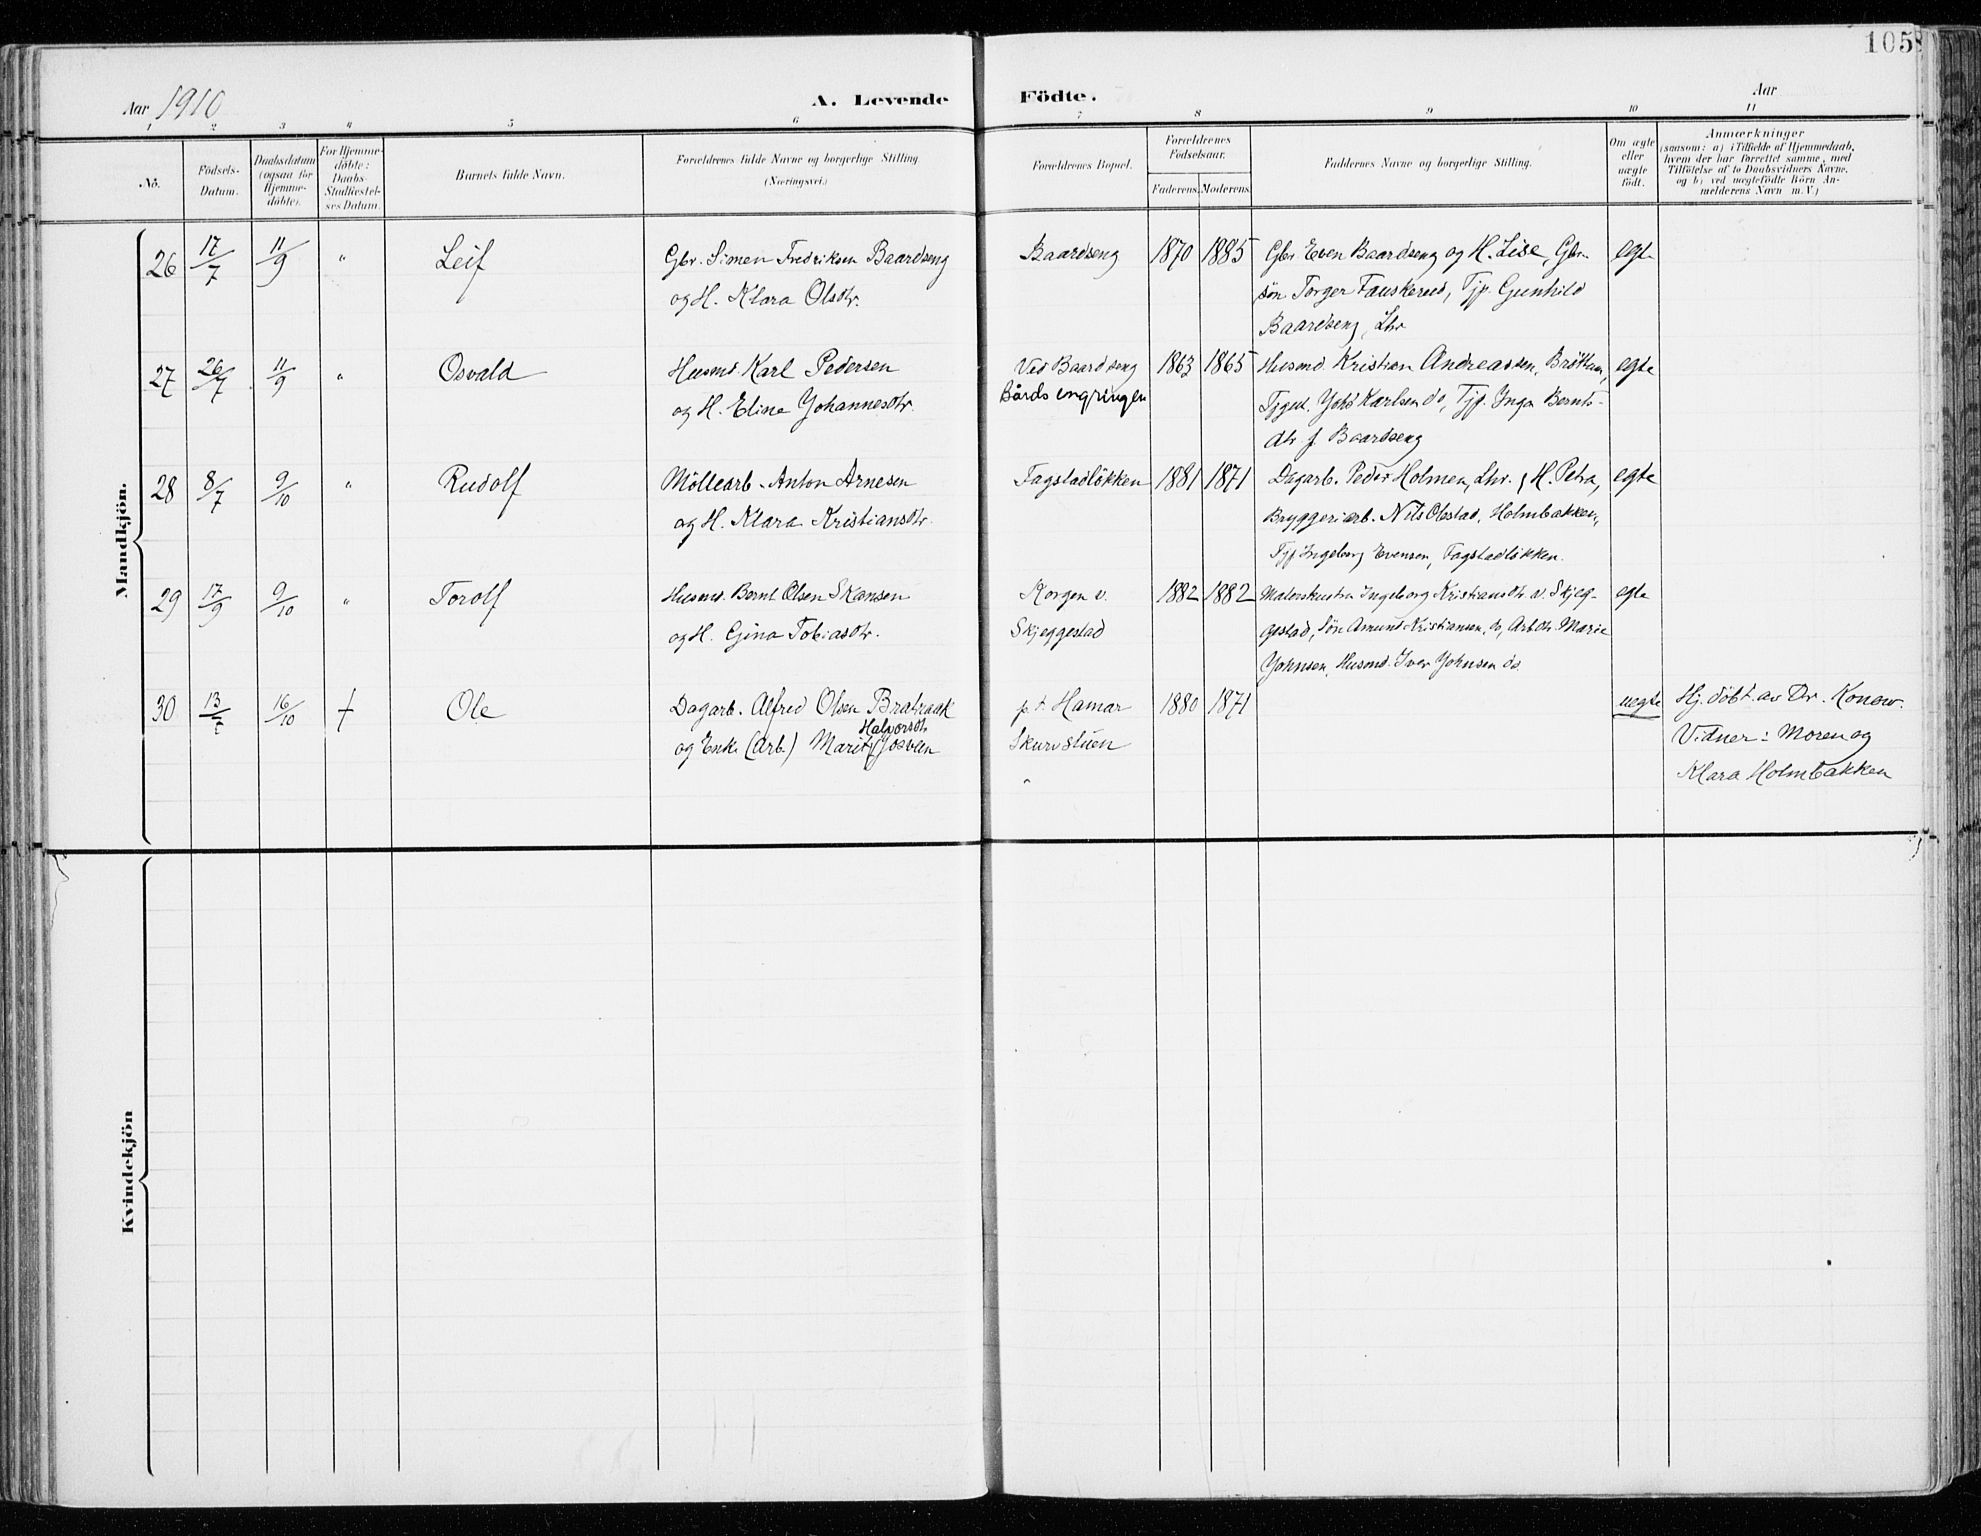 105
Aar 1910
A. Levende Födte.
Aar
1 2 3 4 5 6 7 8 9 10 11
No.
Födsels-Datum.
Daabsdatum (ogsaa for Hjemme-döbte).
For Hjemme-döbte: Daabs-Stadfæstel-ses Datum.
Barnets fulde Navn.
Forældrenes fulde Navne og borgerlige Stilling.
(Næringsvei.)
Forældrenes Bopæl.
Forældrenes Födselsaar.
Faderens. Moderens.
Faddernes Navne og borgerlige Stilling.
Om ægte eller uægte födt.
Anmærkninger
(saasom: a) i Tilfælde af Hjemmedaab,
hvem der har forrettet samme, med
Tilföielse af to Daabsvidners Navne.
og b) ved uægtefödte Börn An-
melderens Navn m. V.)
Mandkjön.
26 17/7 11/9 " Leif Gbr. Simen Fredriksen Baardseng Baardseng 1870 1885 Gbr Even Baardseng og H. Lise, Gbr- egte
og H. Klara Olsdtr. sön Torger Fauskerud, Tjp. Gunhild
Baardseng, Lhr
27 26/7 11/9 " Osvald Husmd. Karl Pedersen Ved Baardseng 1863 1865 Husmd Kristian Andreassen, Bröttum, egte
og H. Eline Johannesdtr. Bårdsengringen Tjged. Karlsen do, Tjp. Inga Bernts-
dtr f. Baardseng
28 8/7 9/10 " Rudolf Möllearb. Anton Arnesen Fagstadlökken 1881 1871 Dagarb. Peder Holmen, Lhr. H. Petra, egte
og H. Klara Kristiansdtr. Bryggeriarb. Nils Olestad, Holmbakken,
Tjp Ingeborg Evensen, Fagstadlökken.
29 17/9 9/10 " Torolf Husmd. Bernt Olsen Skansen Korgen v. 1882 1882 Malerskustru Ingeborg Kristiansdtr v. Skjeg- egte
og H. Gina Tobiasdtr. Skjeggestad gestad, Sön Amund Kristiansen, do, Arbdtr. Marie
Johnsen, Husmd. Iver Johnsen do
30 13/7 16/10 + Ole Dagarb. Alfred Olsen Bratraak p.t. Hamar 1880 1871 uegte Hj. döbt av Dr. Konow.
Halvorsdtr
og Enk. (Arb.) Marit Josveen Skurvstuen Vidner: Moren og
" Klara Holmbakken
Kvindekjön